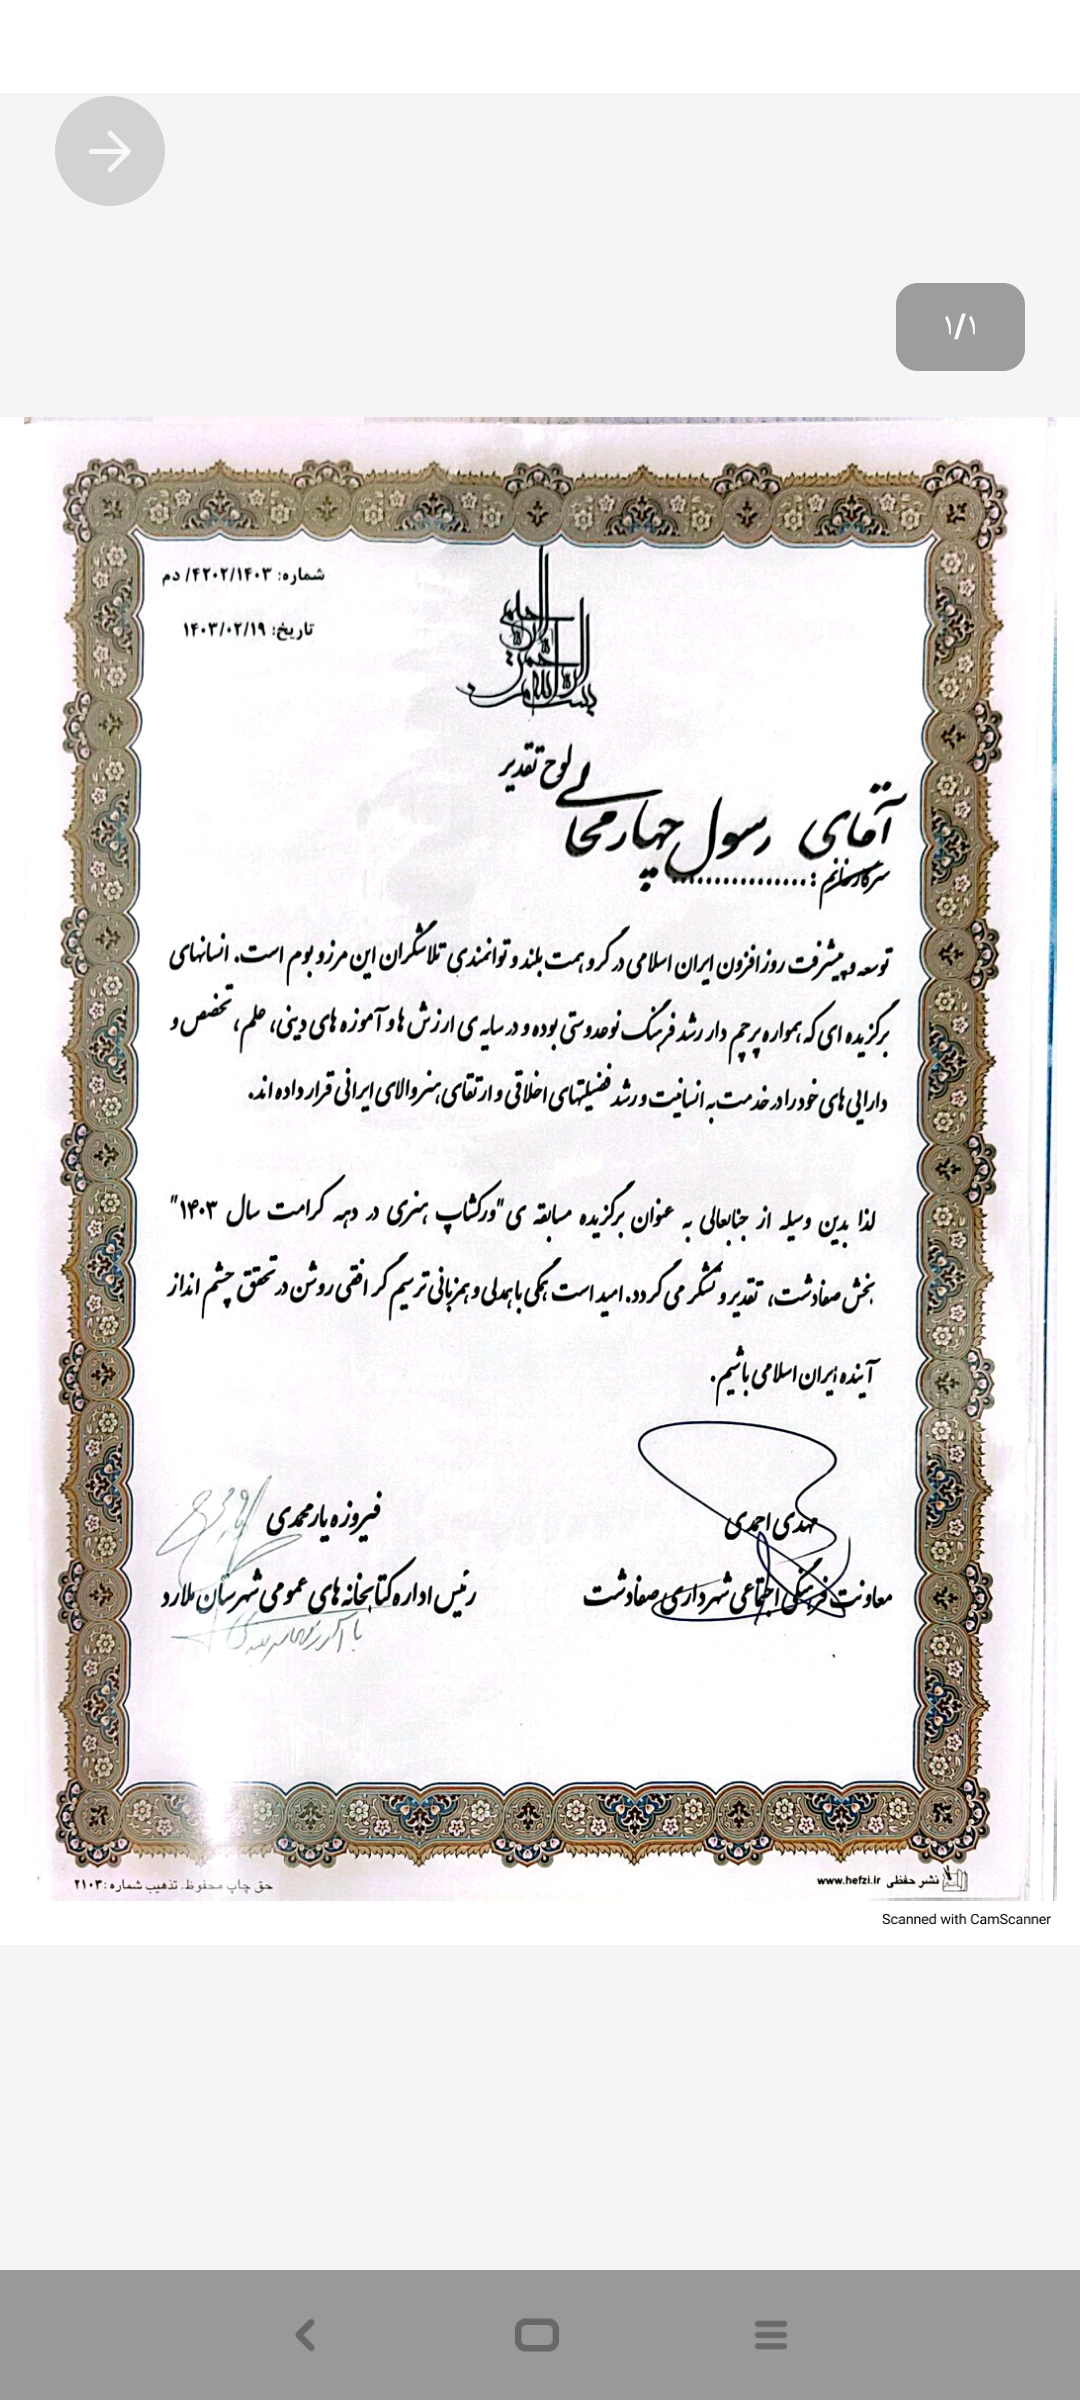 ۱/۱
شماره: ۴۲۰۲/۱۴۰۳/ دم
تاریخ: ۱۴۰۳/۰۲/۱۹
بسم الله الرحمن الرحیم
لوح تقدیر
آقای رسول چهارمحالی
سرکار خانم : ................
توسعه و پیشرفت روزافزون ایران اسلامی در گرو همت بلند و توانمندی تلاشگران این مرز و بوم است. انسانهای
برگزیده ای که همواره پرچم دار رشد فرهنگ نوعدوستی بوده و در سایه ی ارزش ها و آموزه های دینی، علم، تخصص و
دارایی های خود را در خدمت به انسانیت و رشد فضیلتهای اخلاقی و ارتقای هنر والای ایرانی قرار داده اند.
لذا بدین وسیله از جنابعالی به عنوان برگزیده مسابقه ی "ورکشاپ هنری در دهه کرامت سال ۱۴۰۳"
بخش صفادشت، تقدیر و تشکر می گردد. امید است همگی با همدلی و همزبانی ترسیم گر افقی روشن در تحقق چشم انداز
آینده ایران اسلامی باشیم.
مهدی احمدی
معاونت فرهنگی اجتماعی شهرداری صفادشت
فیروزه یارمحمدی
رئیس اداره کتابخانه های عمومی شهرستان ملارد
نشر حفظی www.hefzi.ir
حق چاپ محفوظ. تذهیب شماره: ۲۱۰۳
Scanned with CamScanner